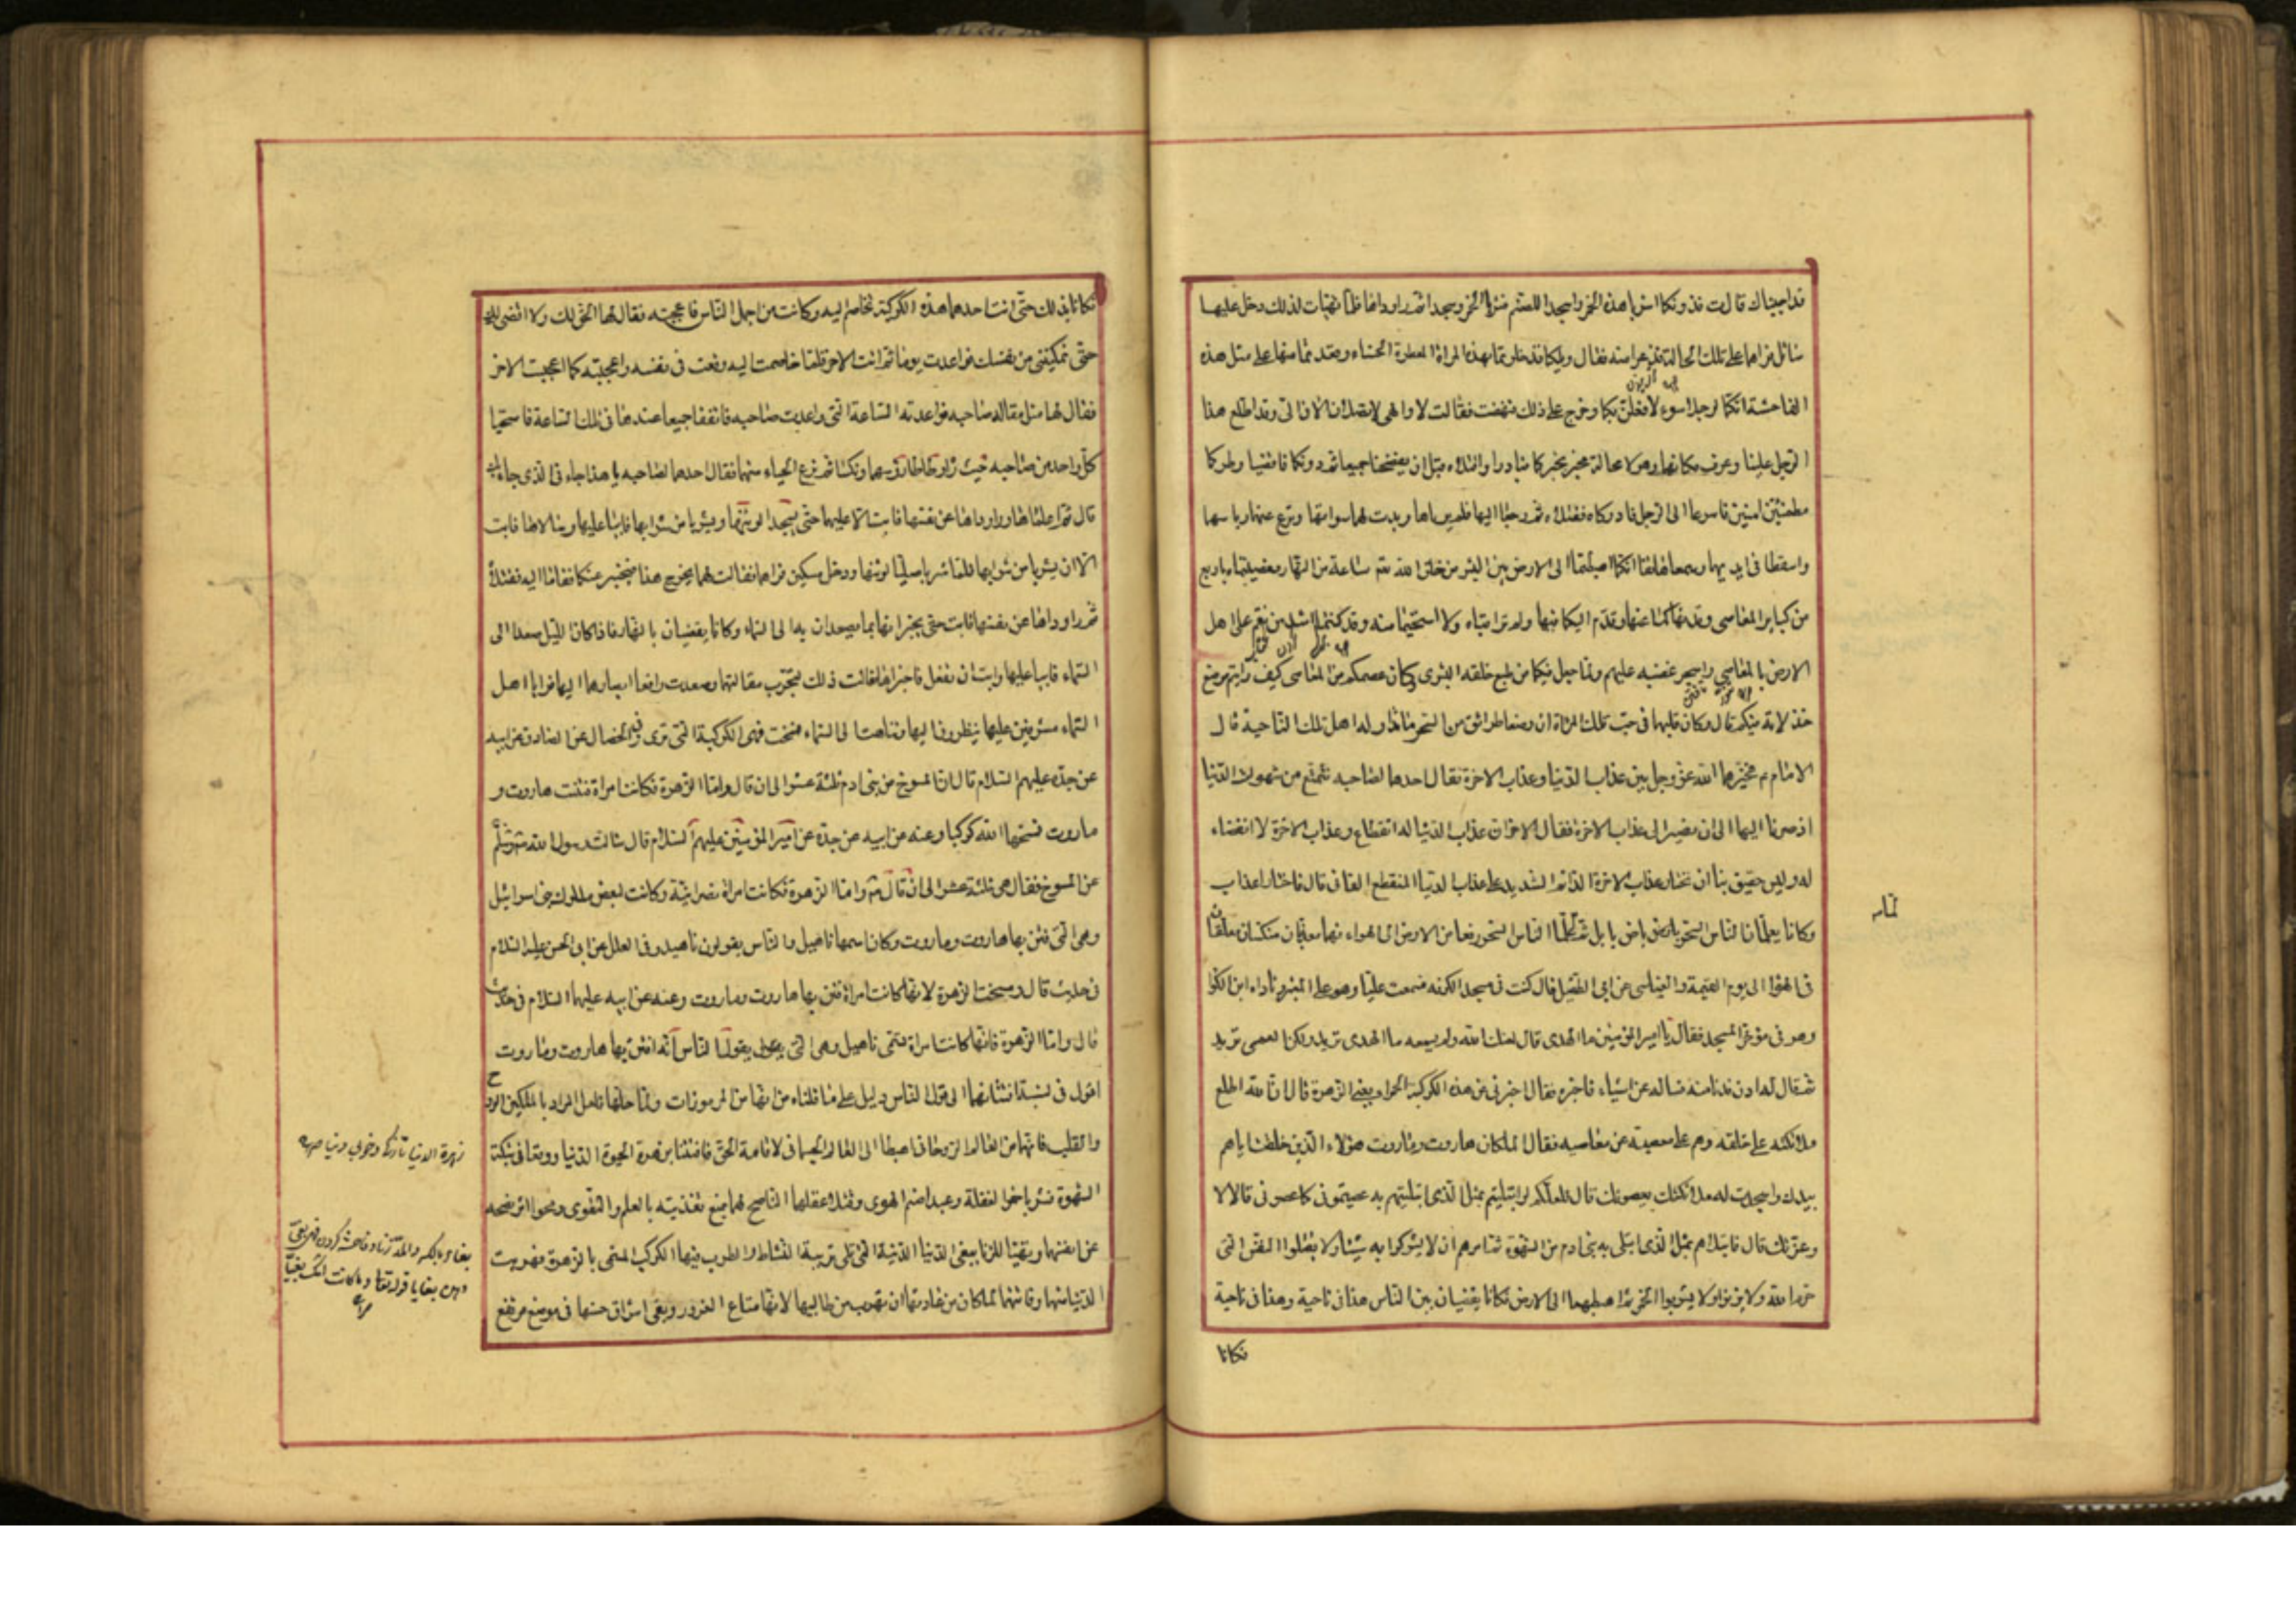 قد اجبناك قالت فدونكما اشربا هذه الخمر واسجدا للصنم فشربا الخمر وسجدا ثم راوداها فلما تهيات لذلك دخل عليهما
سائل فراهما على تلك الحالة فذعرا منه فقال ويلكما قد خلوتما بهذه المراة العطرة الحسناء وقعدتما منها على مثل هذه
الفاحشة انكما لرجلا سوء لافعلن بكما وخرج على ذلك فنهضت فقالت لا والهى لا تصلان الان الى وقد اطلع هذا
الرجل على حالنا وعرف مكاننا وهو لا محالة مخبر بخبركما بادرا واقتلاه قبل ان يفضحنا جميعا ثم دونكما فاقضيا وطركما
مطمئنين امنين فاسرعا الى الرجل فادركاه فقتلاه ثم رجعا اليها فلم يرياها وبدت لهما سواتهما ونزع عنهما رياشهما
واسقطا فى ايديهما وسمعا هاتفا انكما اهبطتما الى الارض بين البشر من خلق الله تم ساعة من النهار فعصيتماه باربع
من كباير المعاصى وقد نهاكما عنها وقدم اليكما فيها ولم تراقباه ولا استحييتما منه وقد كنتما اشد من نقم على اهل
الارض بالمعاصى واسجر غضبه عليهم ولما جعل فيكما من طبع خلقه البشرى وكان عصمكم من المعاصى كيف رايتم موضع
خذلانه فيكم قال وكان قلبهما فى حب تلك المراة ان وضعا طرائق من السحر ما تداوله اهل تلك الناحية قال
الامام م فخيرهما الله عز وجل بين عذاب الدنيا وعذاب الاخرة فقال احدهما لصاحبه نتمتع من شهوات الدنيا
اذ صرنا اليها الى ان نصير الى عذاب الاخرة فقال الاخر ان عذاب الدنيا له انقطاع وعذاب الاخرة لا انقضاء
له وليس حقيق بنا ان نختار عذاب الاخرة الدائم الشديد على عذاب الدنيا المنقطع الفانى قال فاختارا عذاب
وكانا يعلمان الناس السحر بارض بابل ثم لما علما الناس السحر رفعا من الارض الى الهواء فهما معذبان منكسان معلقان
فى الهواء الى يوم القيمة والعياشى عن ابى الطفيل قال كنت فى مسجد الكوفة فسمعت عليا وهو على المنبر وناداه ابن الكوا
وهو فى مؤخر المسجد فقال يا امير المؤمنين ما الهدى قال لعنك الله ولم يسمعه ما الهدى تريد ولكن العمى تريد
ثم قال له ادن فدنا منه فساله عن اشياء فاخبره فقال اخبرنى عن هذه الكوكبة الحمراء يعنى الزهرة قال ان الله اطلع
ملائكته على خلقه وهم على معصية من معاصيه فقال الملكان هاروت وماروت هؤلاء الذين خلقت اباهم
بيدك واسجدت له ملائكتك يعصونك قال فلعلكم لو ابتليتم بمثل الذى ابتليتهم به عصيتمونى كما عصونى قالا لا
وعزتك قال فابتلاهم بمثل الذى ابتلى به بنى ادم من الشهوة ثم امرهم ان لا يشركوا به شيئا ولا يقتلوا النفس التى
حرم الله ولا يزنوا ولا يشربوا الخمر ثم اهبطهما الى الارض فكانا يقضيان بين الناس هذا فى ناحية وهذا فى ناحية
فكانا
فكانا بذلك حتى اتت احدهما هذه الكوكبة تخاصم اليه وكانت من اجمل الناس فاعجبته فقال لها الحق لك ولا اقضى لك
حتى تمكنينى من نفسك فواعدت يوما ثم اتت الاخر فلما خاصمت اليه وقعت فى نفسه واعجبته كما اعجبت الاخر
فقال لها مثل مقالة صاحبه فواعدته الساعة التى واعدت صاحبه فاتفقا جميعا عندها فى تلك الساعة فاستحيا
كل واحد من صاحبه حيث راه وطاطا رؤسهما ونكسا ثم نزع الحياء منهما فقال احدهما لصاحبه يا هذا جاء بى الذى جاء بك
قال ثم اعلماها وراوداها عن نفسها فابت عليهما حتى يسجدا لوثنها ويشربا من شرابها فابيا عليها وسالاها فابت
الا ان يشربا من شرابها فلما شربا صليا لوثنها ودخل مسكين فراهما فقالت لهما يخرج هذا فيخبر عنكما فقاما اليه فقتلاه
ثم راوداها عن نفسها فابت حتى يخبراها بما يصعدان به الى السماء وكانا يقضيان بالنهار فاذا كان الليل صعدا الى
السماء فابيا عليها وابت ان تفعل فاخبراها فقالت ذلك لتجرب مقالتهما وصعدت ورفعا ابصارهما اليها فرايا اهل
السماء مشرفين عليهما ينظرون اليهما وتناهت الى السماء فمسخت فهى الكوكبة التى ترى وفى الخصال عن الصادق عن ابيه
عن جده عليهم السلام قال ان المسوخ من بنى ادم ثلثة عشر الى ان قال واما الزهرة فكانت امراة فتنت هاروت و
ماروت فمسخها الله كوكبا وعنه عن ابيه عن جده عن امير المؤمنين عليهم السلام قال سالت رسول الله
عن المسوخ فقال هى ثلثة عشر الى ان قال واما الزهرة فكانت امراة نصرانية وكانت لبعض ملوك بنى اسرائيل
وهى التى فتن بها هاروت وماروت وكان اسمها ناهيل والناس يقولون ناهيد وفى العلل عن ابى الحسن عليه السلام
فى حديث قال ومسخت الزهرة لانها كانت امراة فتن بها هاروت وماروت وعنه عن ابيه عليهما السلام فى حديث
قال واما الزهرة فانها كانت امراة تسمى ناهيل وهى التى يقول الناس انه افتتن بها هاروت وماروت
اقول فى نسبة افتتانهما الى قول الناس دليل على ما قلناه من انها من المرموزات ولما حلها فلعل المراد بالملكين الروح
والقلب فانهما من العالم الروحانى اهبطا الى العالم الجسمانى لاقامة الحق فافتتنا بزهرة الحيوة الدنيا ووقعا فى شبكة
الشهوة فشربا خمر الغفلة وعبدا صنم الهوى وقتلا عقلهما الناصح لهما بمنع تغذيته بالعلم والتقوى ومحو اثر نصحه
عن انفسهما وتهيئا للزنا ببغى الدنيا الدنية التى تلى تربية النشاط والطرب فيها الكوكب المسمى بالزهرة فهربت
الدنيا منهما وفاتتهما لما كان من عادتها ان تهرب من طالبيها لانها متاع الغرور وبقى اشراق حسنها فى موضع مرتفع
زهرة الدنيا تازكى وخوبى دنيا
بغاء بالكسر والمد زنا وفاحشه كردن فهى بغى
وهن بغايا قوله تعالى وما كانت امك بغيا